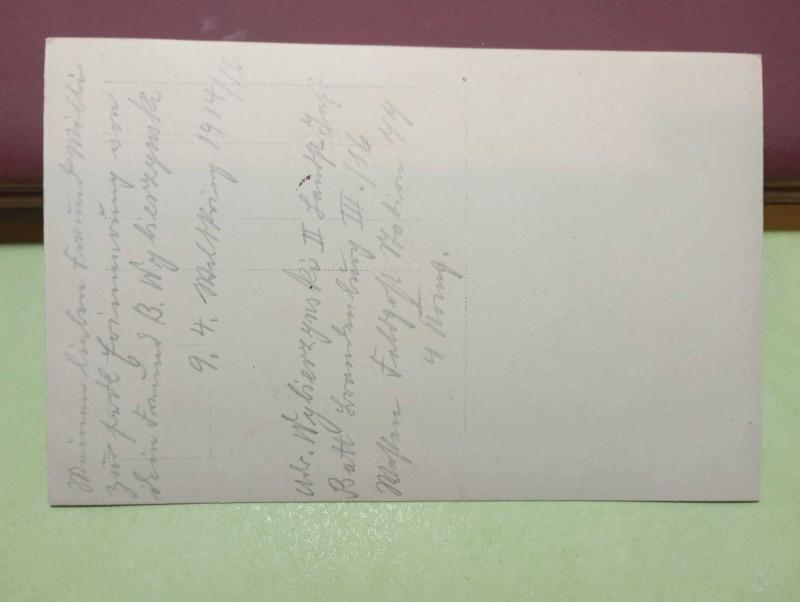 Meinem lieben Freund Willi
zur frdl. Erinnerung von
dein Freund B. Wybierzynski
9. 4. Weltkrieg 1914/16
Adr. Wybierzynski II Landst. Inf.
Batl Brandenburg III./16
Westen Feldpost Station 44
4 Komp.